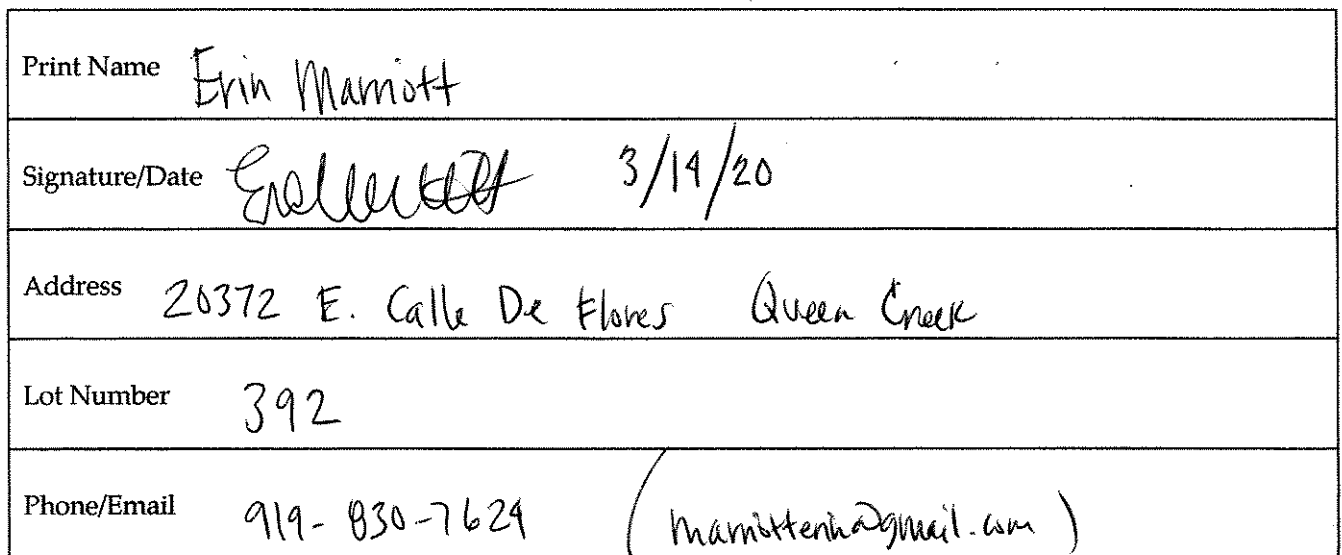 Print Name Erin Marriott
Signature/Date 3/14/20
Address 20372 E. Calle De Flores Queen Creek
Lot Number 392
Phone/Email 919-830-7624 (marriotterin@gmail.com)